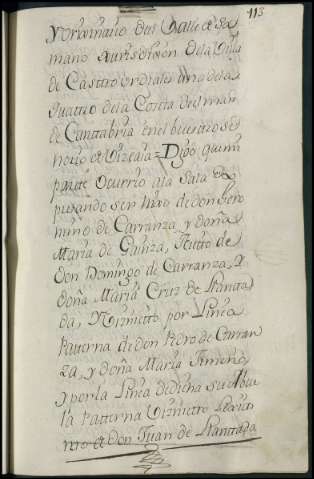 113
Y originario del Valle de Sa
mano Jurisdizion de la Villa
de Casttro ordiales una de las
quattro de la Costa del mar
de Canttabria en el buestro Se
ñorio de Vizcaia = Dijo que mi
partte Ocurrio a la Sala ex
pusando ser hijo de don Gero
nimo de Carranza, y doña
Maria de Gainza, Nietto de
don Domingo de Carranza, y
doña Maria Cruz de Llanttа
da, Viznietto por Linea
Patterna de don Pedro de Carran
za, y doña Maria Ximeno,
y por la Linea de dicha su Abue
la Patterna Viznietto Lexitti
mo de don Juan de Llanttada